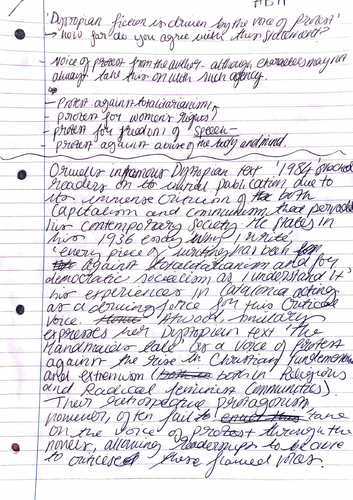 'Dystopian fiction is driven by the voice of protest'
how far do you agree with this statement?
- voice of protest from the author - although characters may not
always take this on with such agency.
- Protest against totalitarianism,
- protest for women's rights,
- protest for freedom of speech
protest against abuse of the body and mind.
Orwells infamous Dystopian text '1984' shocked
readers on its initial publication due to
its immense criticism of both
Capitalism and communism that pervaded
his contemporary society. He states in
his 1936 essay 'Why I write'
'every piece of writing has been
against totalitarianism and for
democratic socialism as I understand it'
his experiences in Catalonia acting
as a driving force for this critical
voice. Atwood, similarly
expresses her Dystopian text 'The
Handmaids tale' as a voice of Protest
against the rise in Christian fundamentalism
and extremism (both in Religious
and Radical feminist Communities).
Their introspective protagonists
however, often fail to take
on the voice of protest through the
novels, allowing readerships to be able
to criticise these flawed voices.